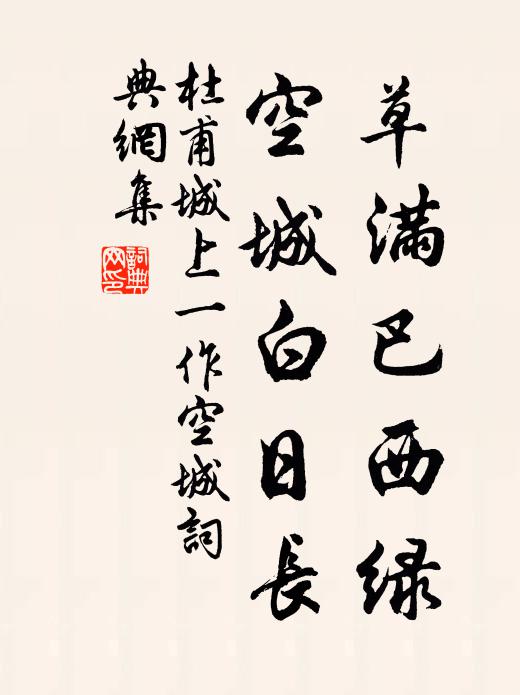 草满巴西绿
空城白日長
杜甫城上一作空城詞
典網集
詞典
網印